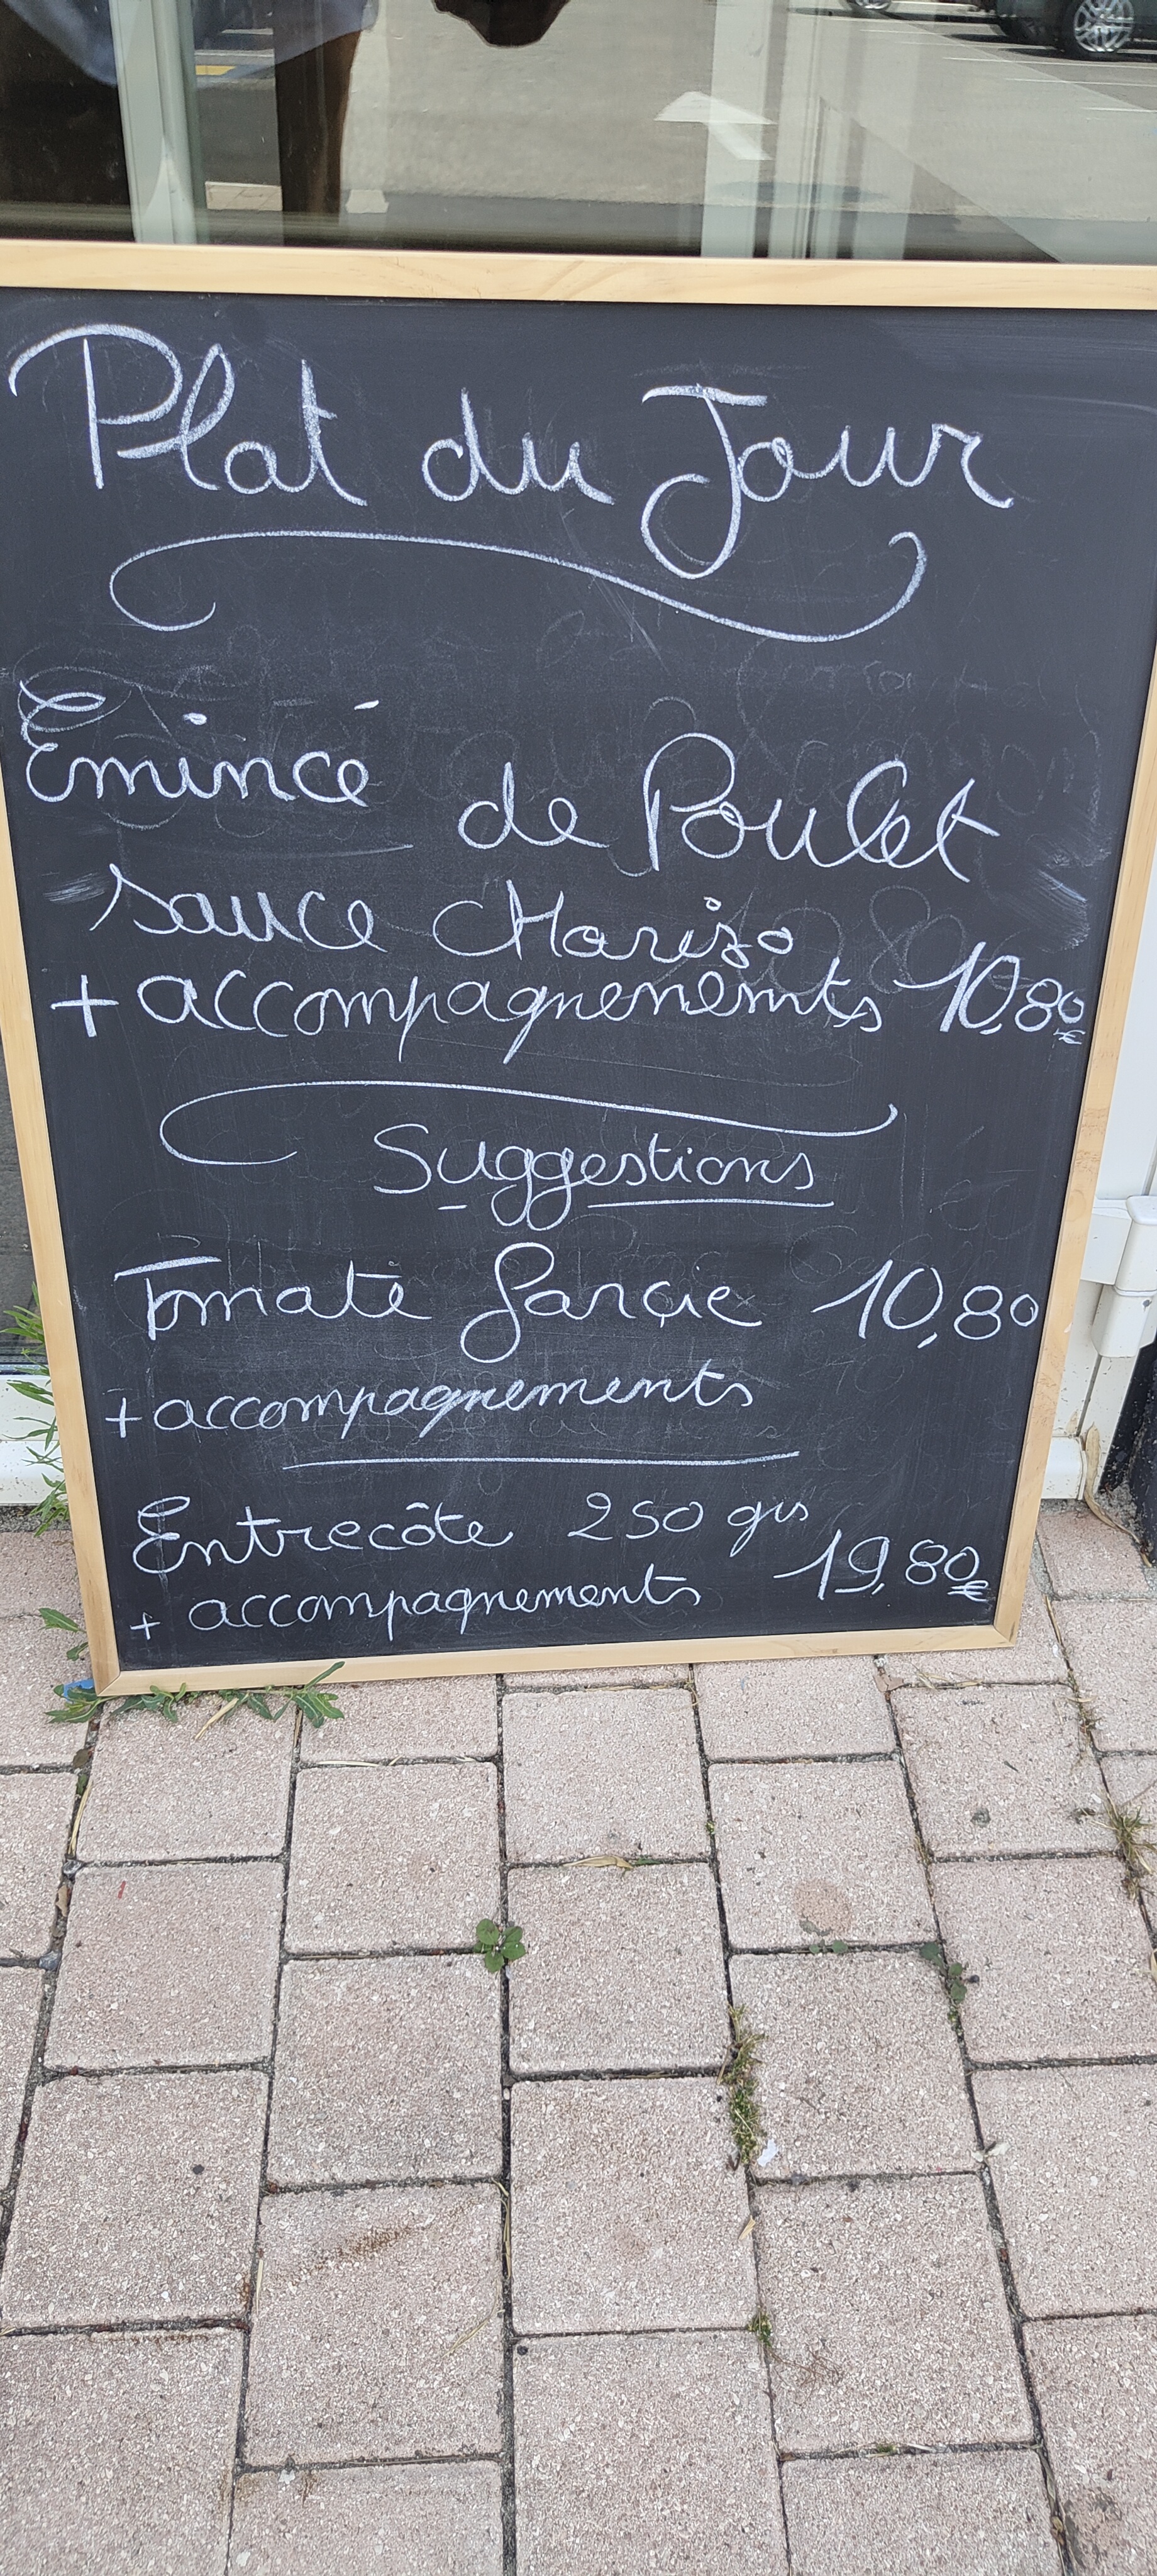 Plat du Jour
Émincé de Poulet
sauce Chorizo
+ accompagnenemts 10,80€
Suggestions
Tomate farcie 10,80
+ accompagnements
Entrecôte 250 grs
+ accompagnements 19,80€